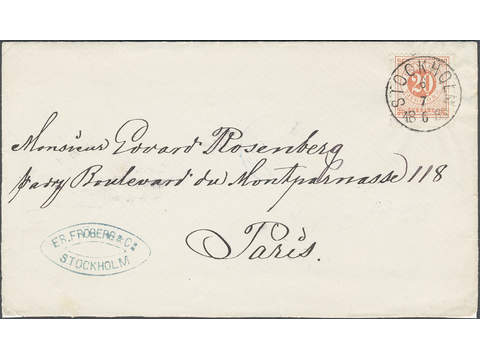 STOCKHOLM
20
6
7
18
Monsieur Edvard Rosenberg
Boulevard du Montparnasse 118
Paris.
FR. FRÖBERG & Co
STOCKHOLM